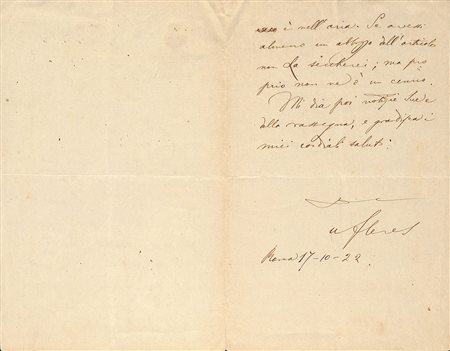 è nell'aria. Se avessi
almeno un abbozzo dell'articolo
non La seccherei; ma pro
prio non ne ò un cenno.
Mi dia poi notizie Sue e
della rassegna, e gradisca i
miei cordiali saluti.
U Fleres
Roma 17-10-22